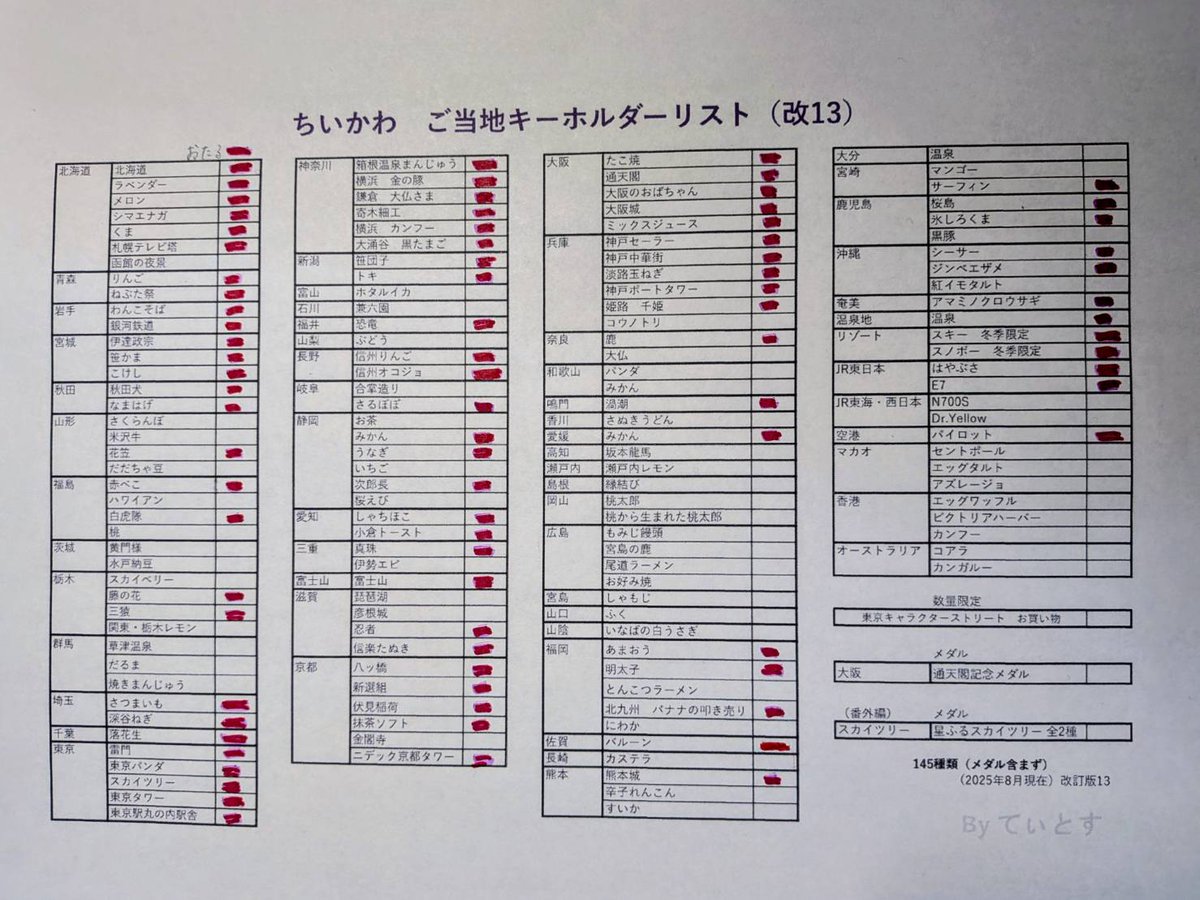 ちいかわ ご当地キーホルダーリスト（改13）
おたる
北海道 北海道
ラベンダー
メロン
シマエナガ
くま
札幌テレビ塔
函館の夜景
青森 りんご
ねぶた祭
岩手 わんこそば
銀河鉄道
宮城 伊達政宗
笹かま
こけし
秋田 秋田犬
なまはげ
山形 さくらんぼ
米沢牛
花笠
だだちゃ豆
福島 赤べこ
ハワイアン
白虎隊
桃
茨城 黄門様
水戸納豆
栃木 スカイベリー
藤の花
三猿
関東・栃木レモン
群馬 草津温泉
だるま
焼きまんじゅう
埼玉 さつまいも
深谷ねぎ
千葉 落花生
東京 雷門
東京パンダ
スカイツリー
東京タワー
東京駅丸の内駅舎
神奈川 箱根温泉まんじゅう
横浜 金の豚
鎌倉 大仏さま
寄木細工
横浜 カンフー
大涌谷 黒たまご
新潟 笹団子
トキ
富山 ホタルイカ
石川 兼六園
福井 恐竜
山梨 ぶどう
長野 信州りんご
信州オコジョ
岐阜 合掌造り
さるぼぼ
静岡 お茶
みかん
うなぎ
いちご
次郎長
桜えび
愛知 しゃちほこ
小倉トースト
三重 真珠
伊勢エビ
富士山 富士山
滋賀 琵琶湖
彦根城
忍者
信楽たぬき
京都 八ッ橋
新選組
伏見稲荷
抹茶ソフト
金閣寺
ニデック京都タワー
大阪 たこ焼
通天閣
大阪のおばちゃん
大阪城
ミックスジュース
兵庫 神戸セーラー
神戸中華街
淡路玉ねぎ
神戸ポートタワー
姫路 千姫
コウノトリ
奈良 鹿
大仏
和歌山 パンダ
みかん
鳴門 渦潮
香川 さぬきうどん
愛媛 みかん
高知 坂本龍馬
瀬戸内 瀬戸内レモン
島根 縁結び
岡山 桃太郎
桃から生まれた桃太郎
広島 もみじ饅頭
宮島の鹿
尾道ラーメン
お好み焼
宮島 しゃもじ
山口 ふく
山陰 いなばの白うさぎ
福岡 あまおう
明太子
とんこつラーメン
北九州 バナナの叩き売り
にわか
佐賀 バルーン
長崎 カステラ
熊本 熊本城
辛子れんこん
すいか
大分 温泉
宮崎 マンゴー
サーフィン
鹿児島 桜島
氷しろくま
黒豚
沖縄 シーサー
ジンベエザメ
紅イモタルト
奄美 アマミノクロウサギ
温泉地 温泉
リゾート スキー 冬季限定
スノボー 冬季限定
JR東日本 はやぶさ
E7
JR東海・西日本 N700S
Dr.Yellow
空港 パイロット
マカオ セントポール
エッグタルト
アズレージョ
香港 エッグワッフル
ビクトリアハーバー
カンフー
オーストラリア コアラ
カンガルー
数量限定
東京キャラクターストリート お買い物
メダル
大阪 通天閣記念メダル
（番外編） メダル
スカイツリー 星ふるスカイツリー 全2種
145種類（メダル含まず）
（2025年8月現在）改訂版13
By てぃとす